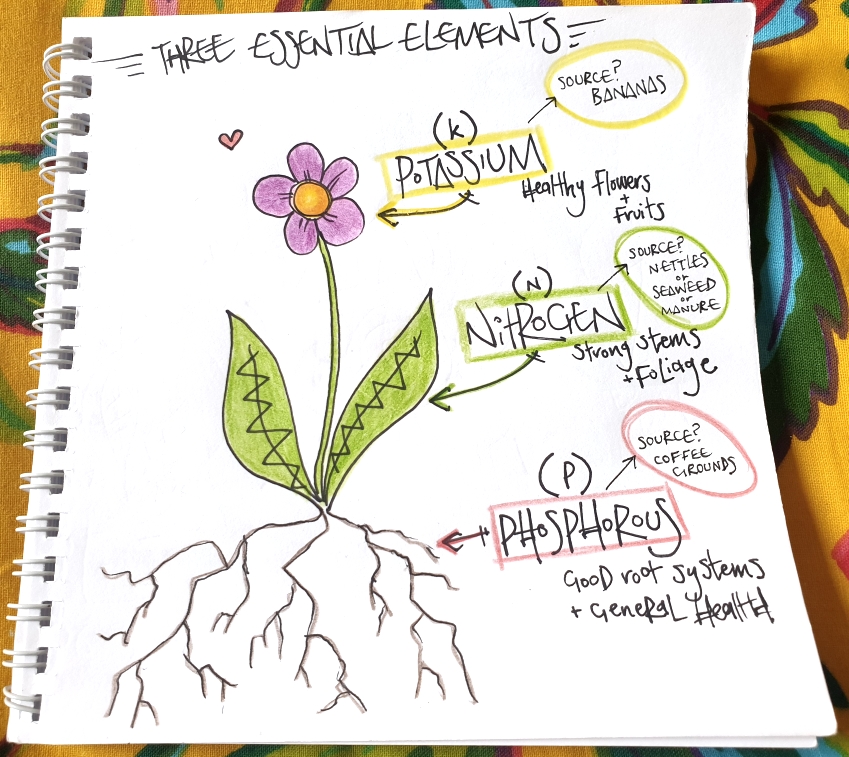 THREE ESSENTIAL ELEMENTS
SOURCE?
BANANAS
(K)
POTASSIUM
Healthy Flowers
+
Fruits
(N)
NitROGEN
SOURCE?
NETTLES
or
SEAWEED
or
MANURE
Strong stems
+ Foliage
SOURCE?
COFFEE
GROUNDS
(P)
PHOSPHOROUS
GOOD root systems
+ General Health